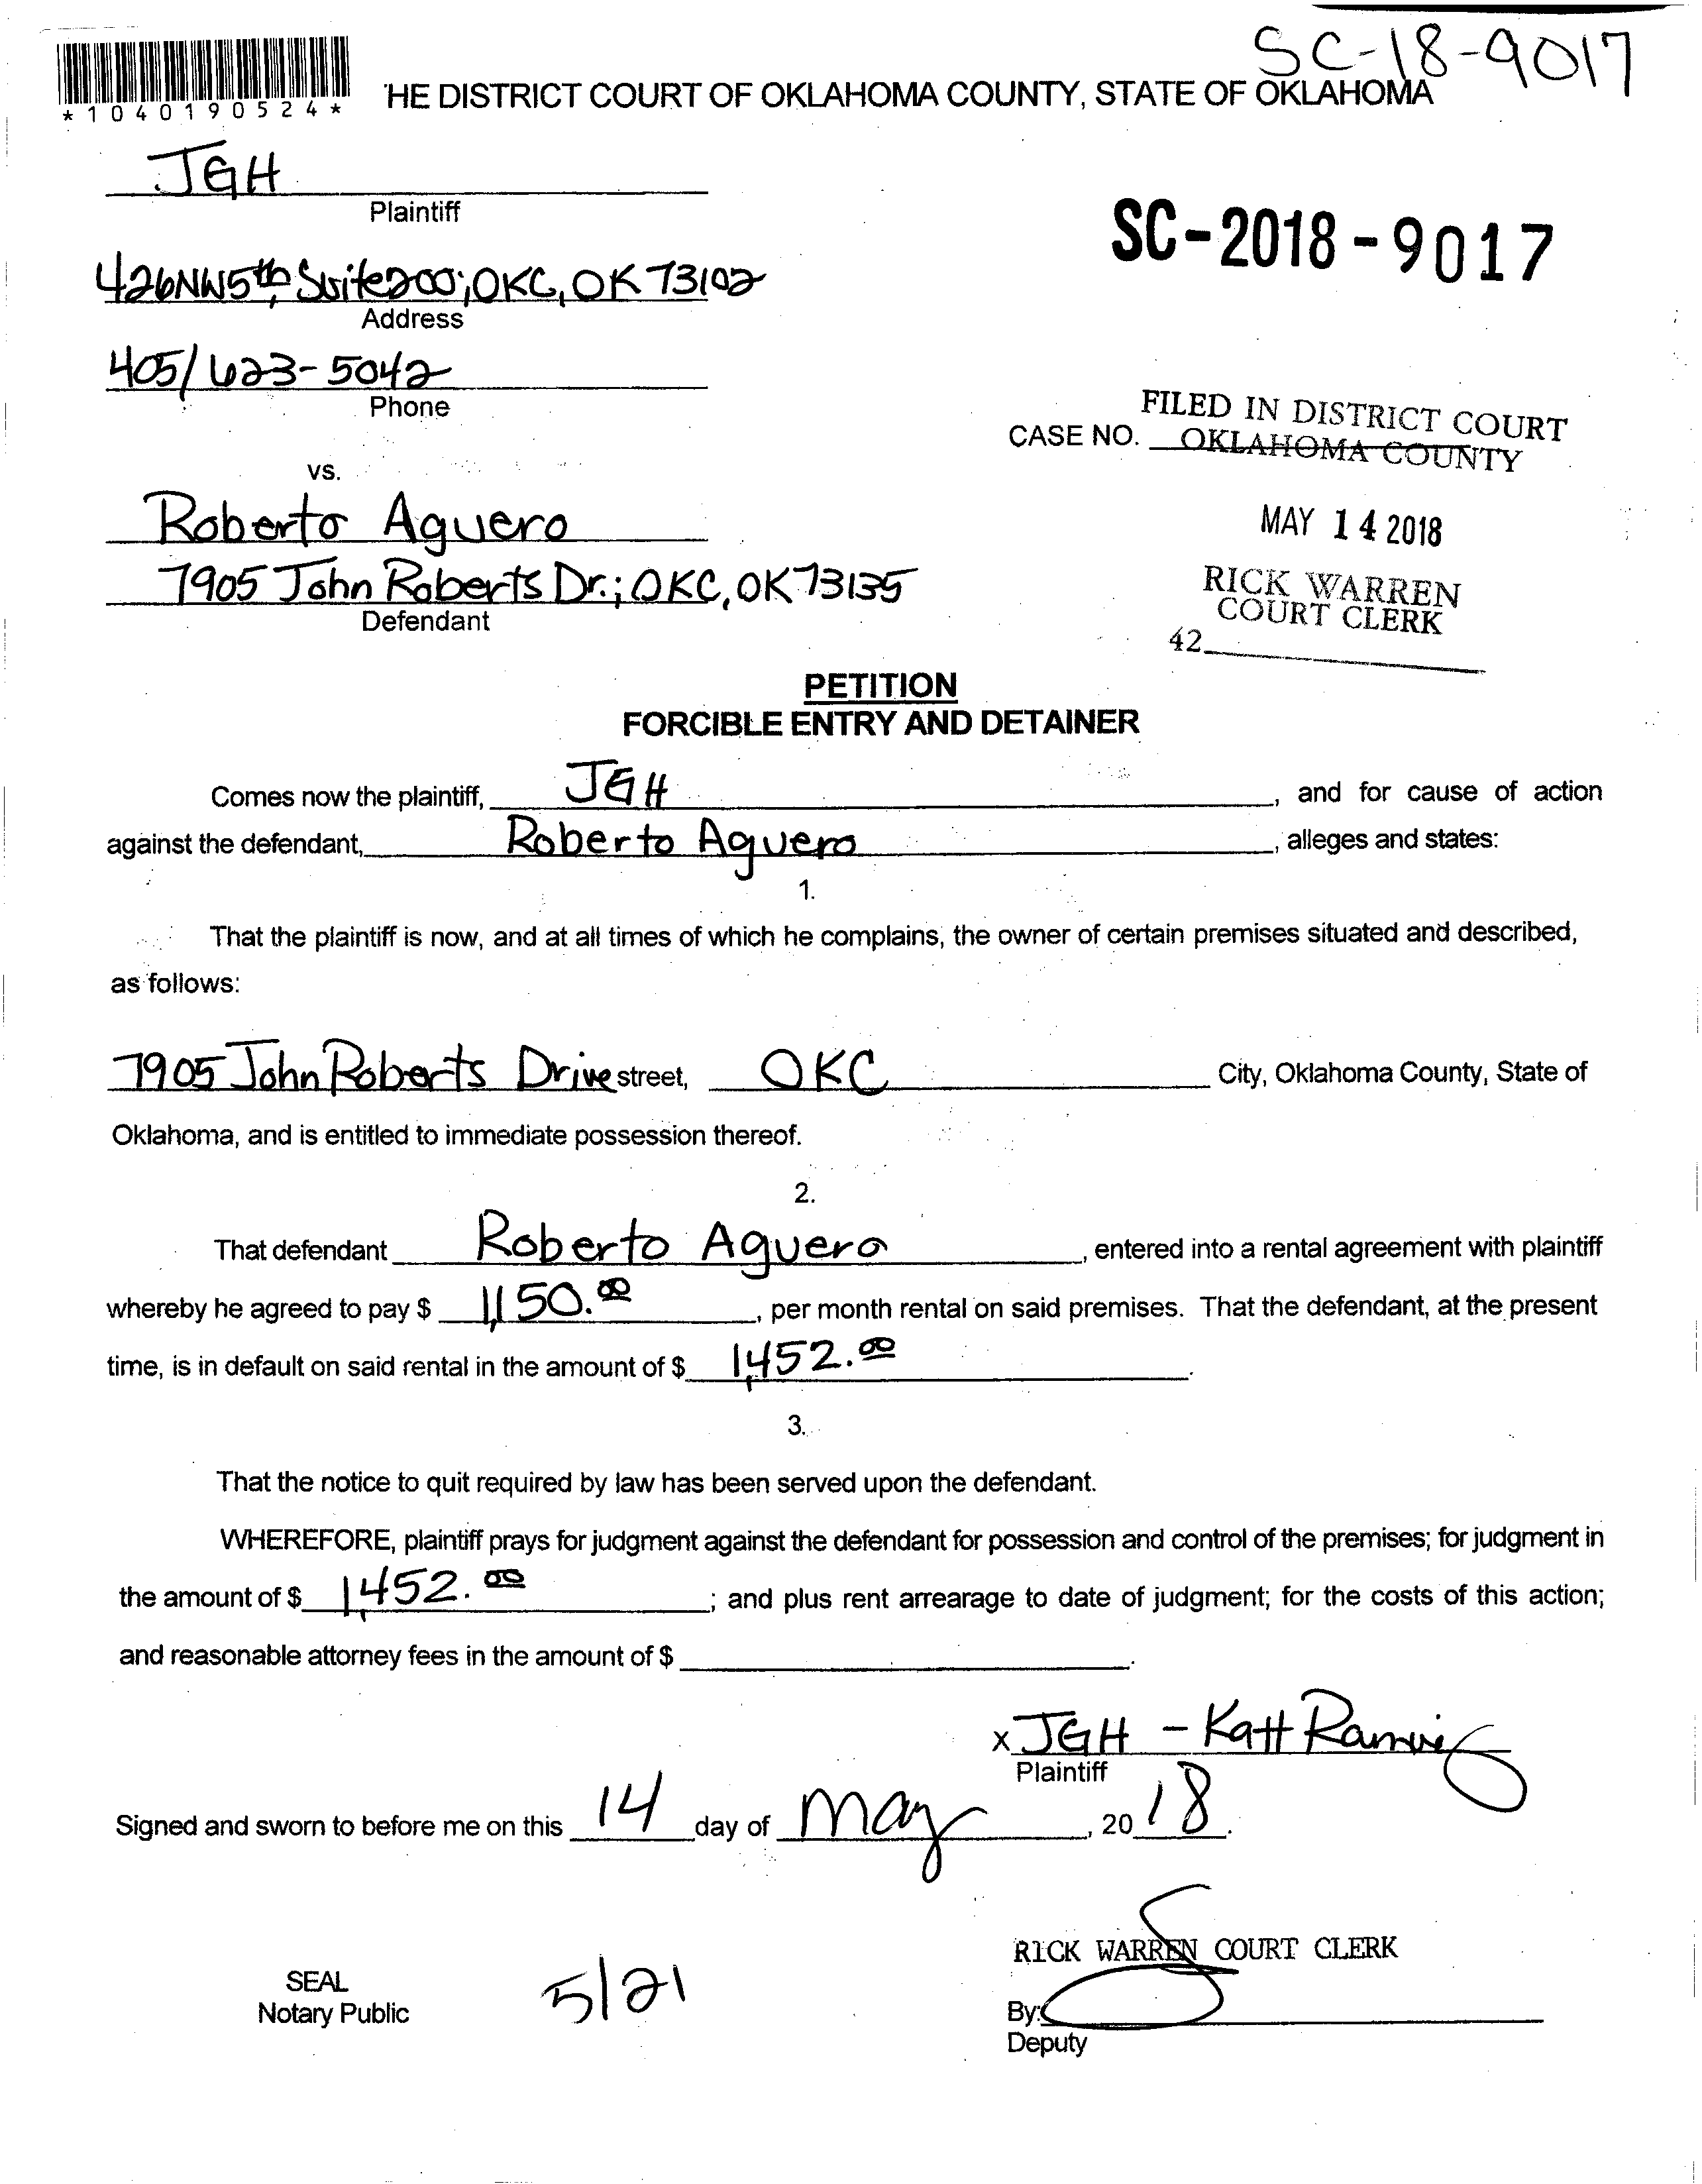 SC-18-9017
*1040190524*
'HE DISTRICT COURT OF OKLAHOMA COUNTY, STATE OF OKLAHOMA
JGH
Plaintiff
SC-2018-9017
426 NW 5th, Suite 200; OKC, OK 73102
Address
405/623-5042
Phone
FILED IN DISTRICT COURT
CASE NO. OKLAHOMA COUNTY
vs.
Roberto Aguero
MAY 14 2018
7905 John Roberts Dr.; OKC, OK 73135
Defendant
RICK WARREN
COURT CLERK
42
PETITION
FORCIBLE ENTRY AND DETAINER
Comes now the plaintiff, JGH, and for cause of action
against the defendant, Roberto Aguero, alleges and states:
1.
That the plaintiff is now, and at all times of which he complains, the owner of certain premises situated and described,
as follows:
7905 John Roberts Drive street, OKC City, Oklahoma County, State of
Oklahoma, and is entitled to immediate possession thereof.
2.
That defendant Roberto Aguero, entered into a rental agreement with plaintiff
whereby he agreed to pay $ 1,150.00, per month rental on said premises. That the defendant, at the present
time, is in default on said rental in the amount of $ 1,452.00.
3.
That the notice to quit required by law has been served upon the defendant.
WHEREFORE, plaintiff prays for judgment against the defendant for possession and control of the premises; for judgment in
the amount of $ 1,452.00; and plus rent arrearage to date of judgment; for the costs of this action;
and reasonable attorney fees in the amount of $ .
x JGH - Katt Ramirez
Plaintiff
Signed and sworn to before me on this 14 day of May, 2018.
RICK WARREN COURT CLERK
SEAL
Notary Public
5/21
By:
Deputy